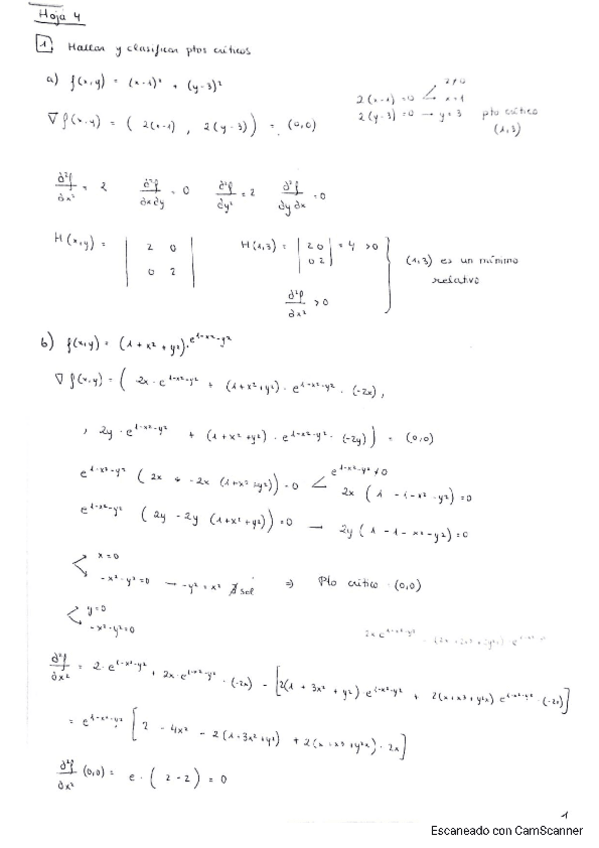 Hoja 4
1 Hallar y clasificar ptos críticos
a) f(x,y) = (x-1)² + (y-3)²
∇f(x,y) = ( 2(x-1) , 2(y-3) ) = (0,0)
2≠0
2(x-1) = 0 x=1
2(y-3) = 0 → y=3 pto crítico
(1,3)
∂²f/∂x² = 2 ∂²f/∂x∂y = 0 ∂²f/∂y² = 2 ∂²f/∂y∂x = 0
H(x,y) = | 2 0 | H(1,3) = | 2 0 | = 4 >0 } (1,3) es un mínimo
| 0 2 | | 0 2 | relativo
∂²f/∂x² >0
b) f(x,y) = (1+x²+y²)·e^1-x²-y²
∇f(x,y) = ( 2x·e^1-x²-y² + (1+x²+y²)·e^1-x²-y²·(-2x),
, 2y·e^1-x²-y² + (1+x²+y²)·e^1-x²-y²·(-2y) ) = (0,0)
e^1-x²-y² ≠0
e^1-x²-y² ( 2x + -2x (1+x²+y²)) = 0 2x ( 1 -1-x² -y²) = 0
e^1-x²-y² ( 2y - 2y (1+x²+y²)) = 0 → 2y ( 1 - 1 - x² - y²) = 0
x=0
-x²-y²=0 → -y² = x² ∄ sol ⇒ Pto crítico (0,0)
y=0
-x²-y²=0
∂²f/∂x² = 2·e^1-x²-y² + 2x·e^1-x²-y²·(-2x) - [2(1+3x²+y²) e^1-x²-y² + 2(x+x³+y²x) e^1-x²-y²·(-2x)]
= e^1-x²-y² [ 2 - 4x² - 2(1+3x²+y²) + 2(x+x³+y²x)·2x]
∂²f/∂x² (0,0) = e·( 2-2 ) = 0
1
Escaneado con CamScanner